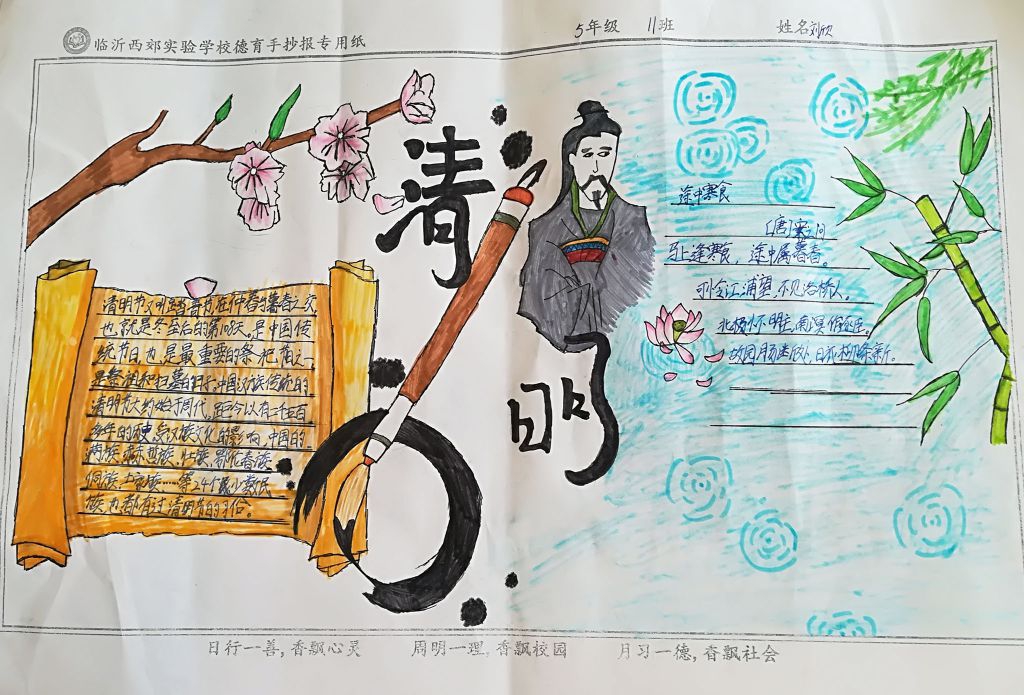 临沂西郊实验学校德育手抄报专用纸
5年级 11班 姓名刘欣
清
明
清明节又叫踏青节,在仲春与暮春之交
也就是冬至后的第108天,是中国传
统节日,也是最重要的祭祀节日之一,
是祭祖和扫墓的日子,中国汉族传统的
清明节大约始于周代,距今以有二千五百
多年的历史,受汉族文化的影响,中国的
满族、赫哲族、壮族、鄂伦春族、
侗族、土家族……等24个最少数民
族,也都有过清明节的习俗。
途中寒食
[唐]宋之问
马上逢寒食,途中属暮春。
可怜江浦望,不见洛桥人。
北极怀明主,南溟作逐臣。
故园肠断处,日夜柳条新。
日行一善,香飘心灵 周明一理,香飘校园 月习一德,香飘社会